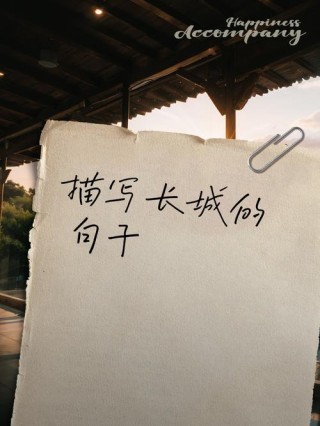 Happiness
Accompany
描写长城的
句子